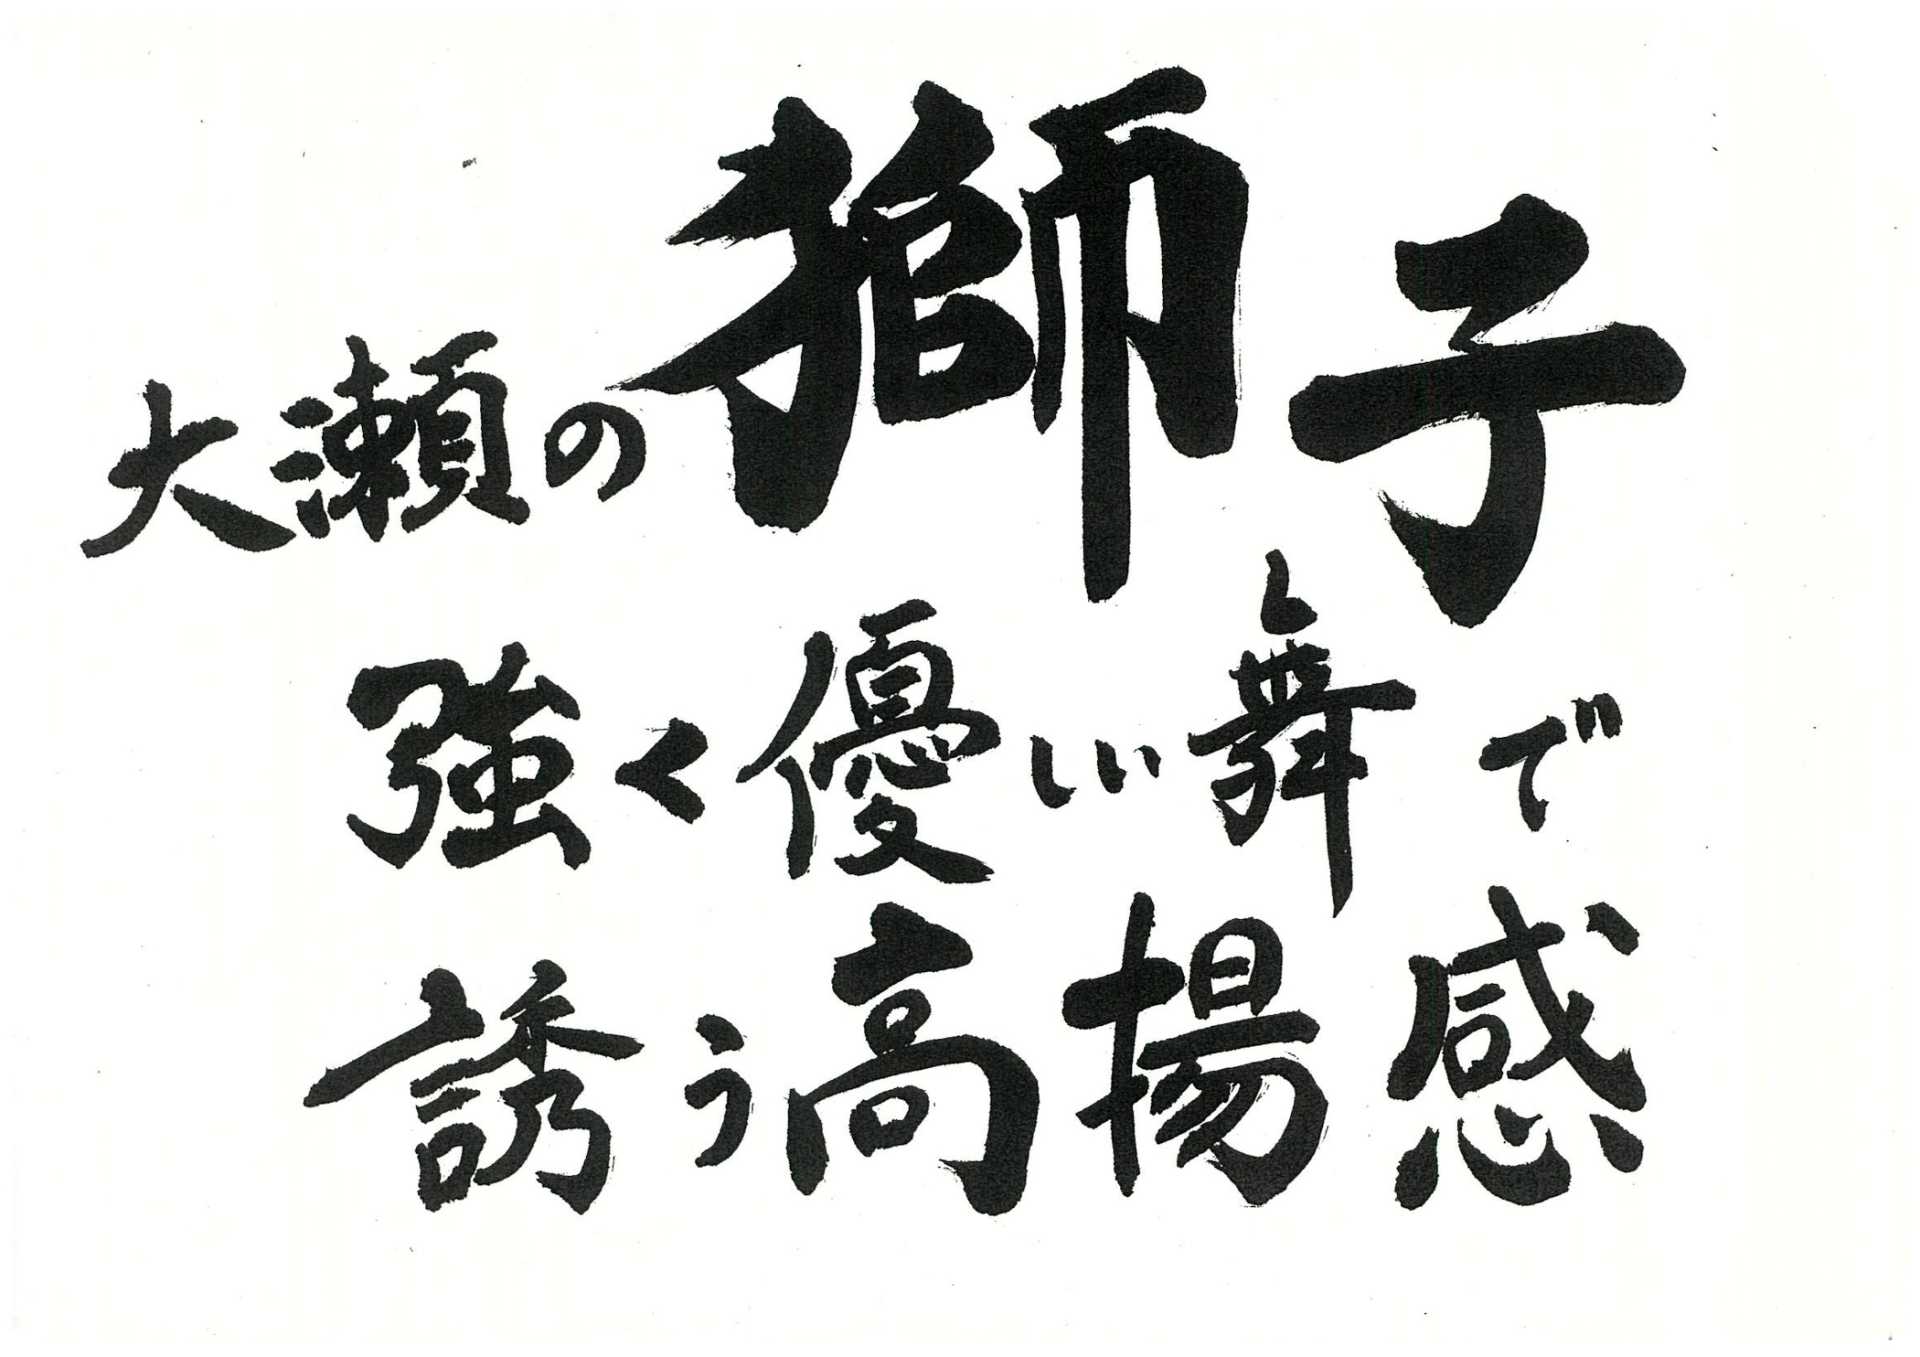 大瀬の獅子
強く優しい舞で
誘う高揚感